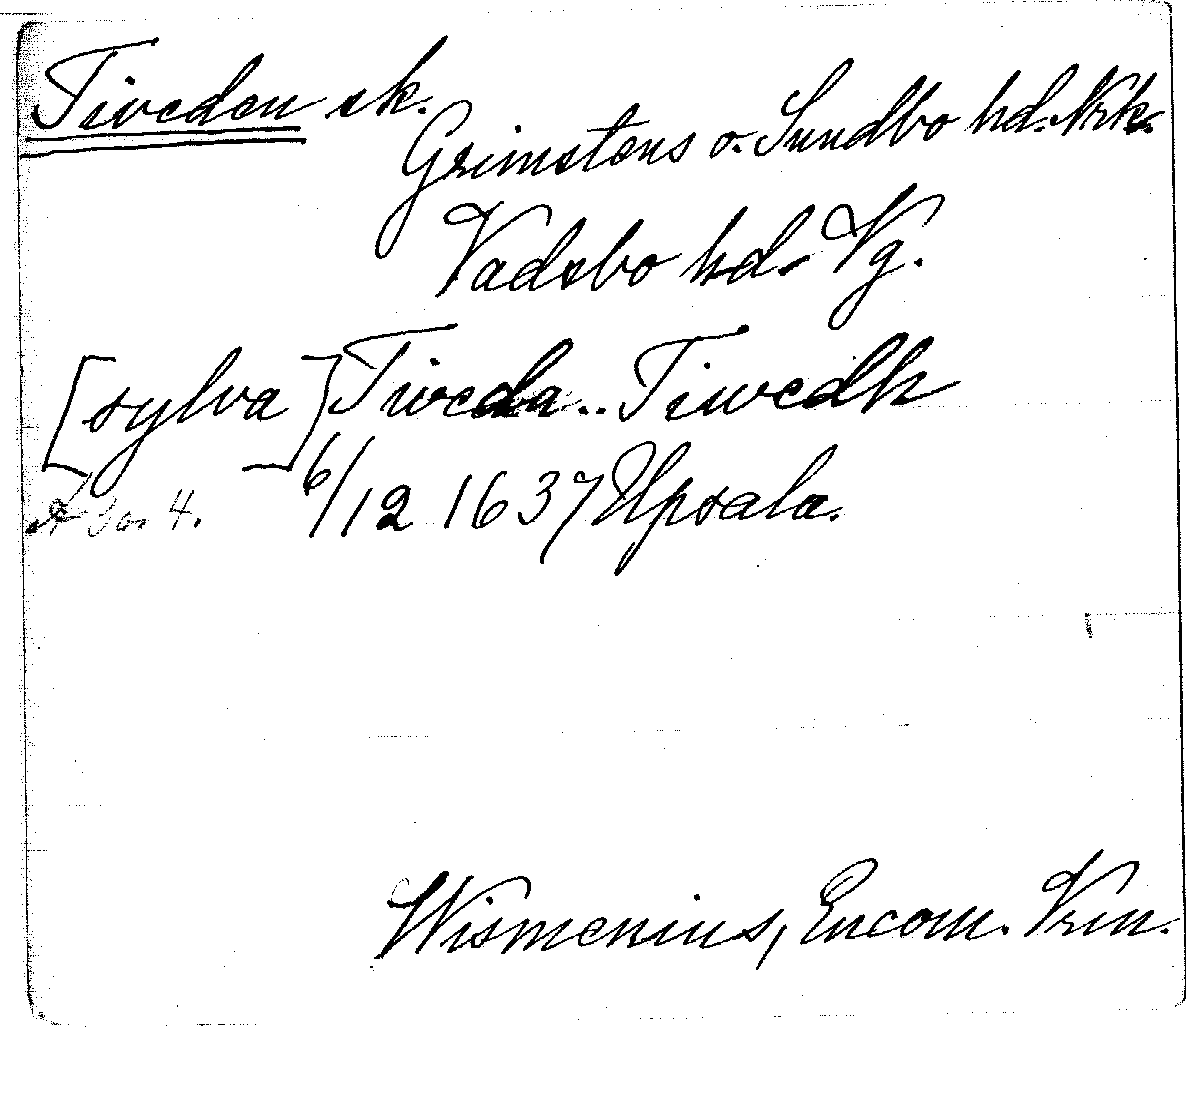 Tiveden sk.
Grimstens o. Sundbo hd. Nrk.
Vadsbo hd. Vg.
[sylva] Tiveda.. Tiwedh
6/12 1637 Upsala.
4.
Wismenius, Encom. Vrin.